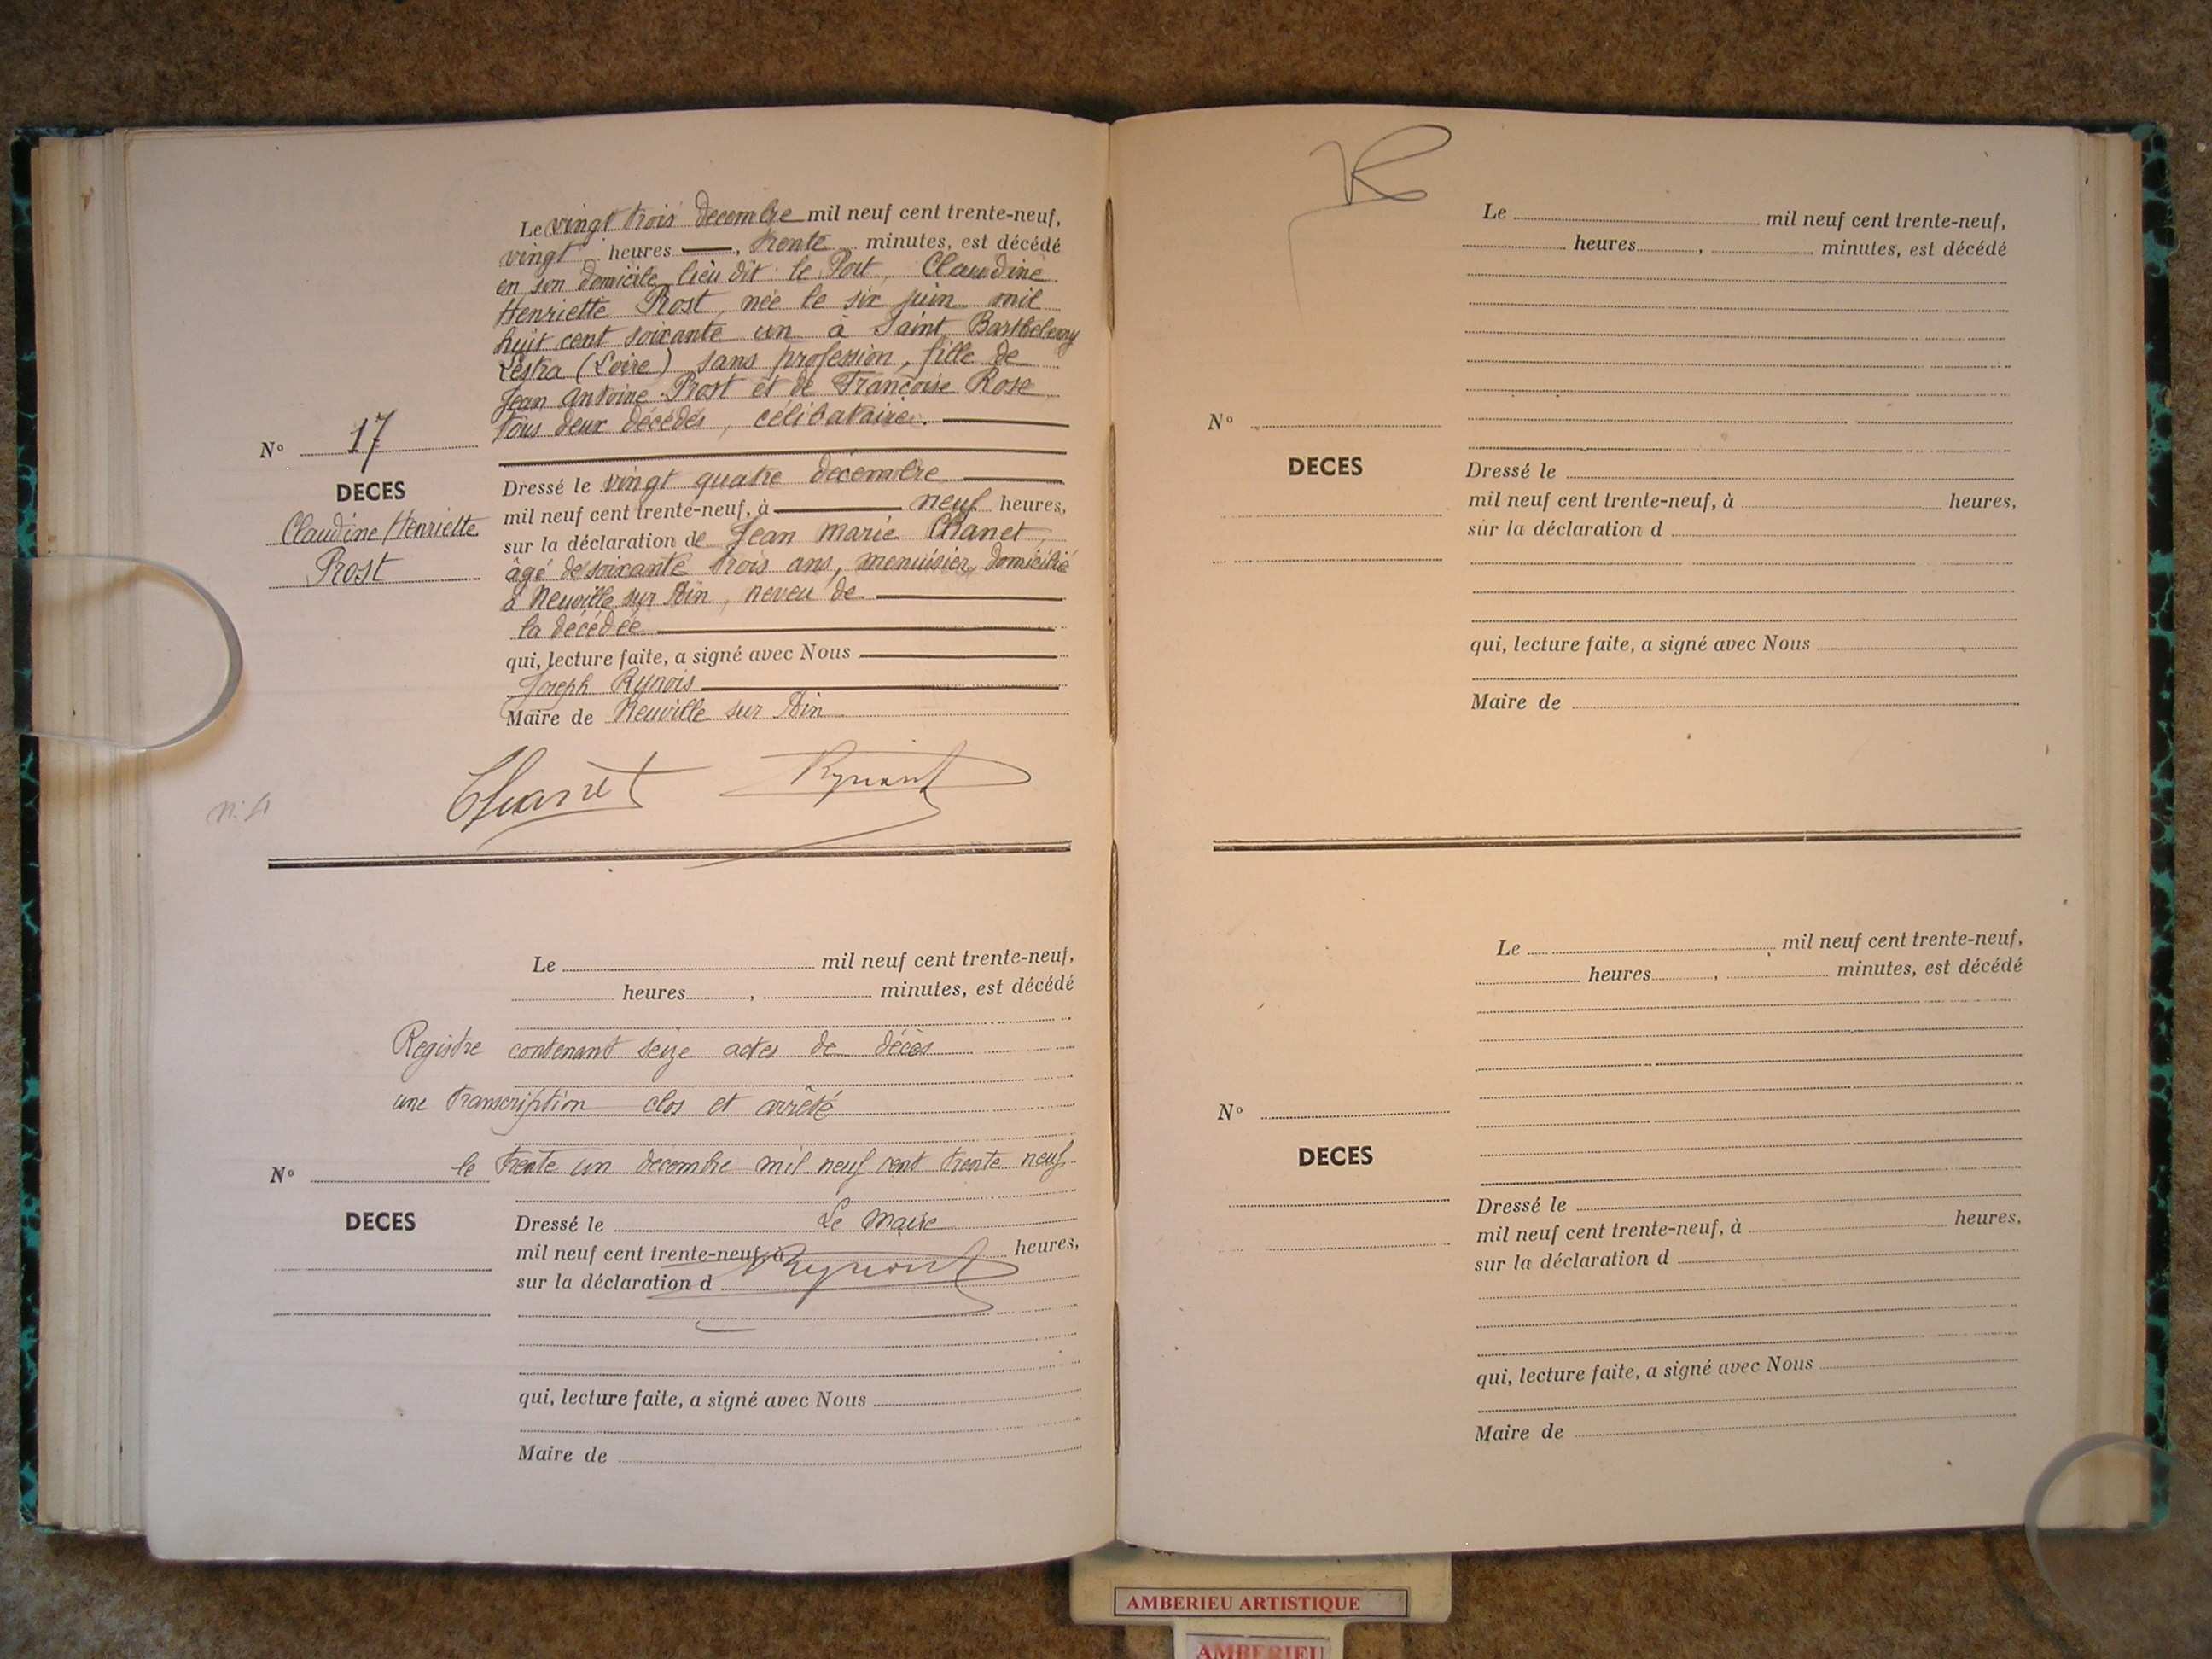 Le vingt trois decembre mil neuf cent trente-neuf,
vingt heures , trente minutes, est décédé
en son domicile lieu dit le Port, Claudine
Henriette Prost, née le six juin mil
huit cent soixante un à Saint Barthelemy
Lestra (Loire) sans profession, fille de
Jean Antoine Prost et de Françoise Rose
tous deux décédés, célibataire.
No 17
DECES
Claudine Henriette
Prost
Dressé le vingt quatre décembre
mil neuf cent trente-neuf, à neuf heures,
sur la déclaration de Jean Marie Chanet,
âgé de soixante trois ans, menuisier, domicilié
à Neuville sur Ain, neveu de
la décédée
qui, lecture faite, a signé avec Nous
Joseph
Maire de Neuville sur Ain
Chanet
Le mil neuf cent trente-neuf,
heures , minutes, est décédé
Registre contenant seize actes de décès
une transcription clos et arrêté
le trente un décembre mil neuf cent trente neuf
No
DECES
Dressé le Le Maire
mil neuf cent trente-neuf, à heures,
sur la déclaration d
qui, lecture faite, a signé avec Nous
Maire de
Le mil neuf cent trente-neuf,
heures , minutes, est décédé
No
DECES
Dressé le
mil neuf cent trente-neuf, à heures,
sur la déclaration d
qui, lecture faite, a signé avec Nous
Maire de
Le mil neuf cent trente-neuf,
heures , minutes, est décédé
No
DECES
Dressé le
mil neuf cent trente-neuf, à heures,
sur la déclaration d
qui, lecture faite, a signé avec Nous
Maire de
AMBERIEU ARTISTIQUE
AMBERIEU